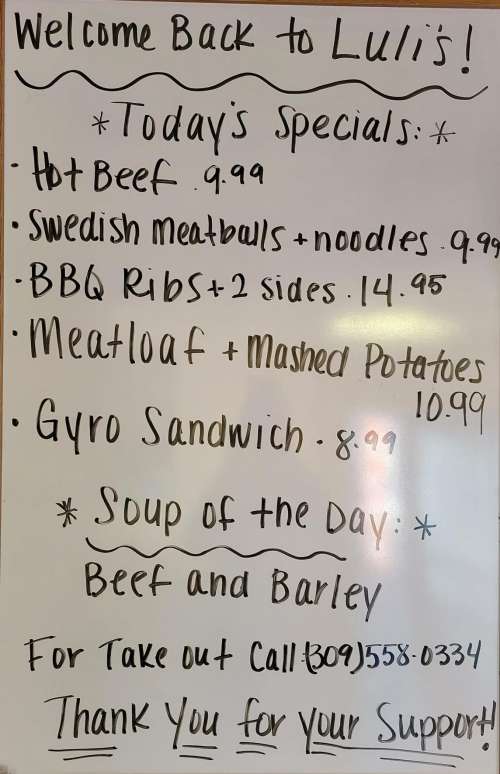 Welcome Back to Luli's!
*Today's Specials:*
· Hot Beef . 9.99
· Swedish Meatballs + noodles . 9.99
· BBQ Ribs + 2 sides . 14.95
· Meatloaf + Mashed Potatoes
10.99
· Gyro Sandwich . 8.99
* Soup of the Day: *
Beef and Barley
For Take out Call (309)558-0334
Thank You for your Support!